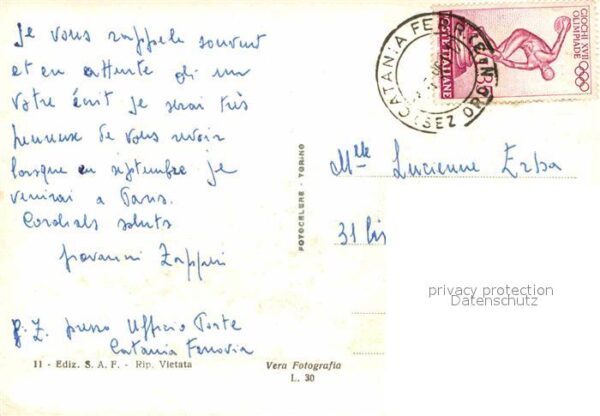 Je vous rappele souvent
et en attente di un
votre écrit je serai très
heureuse de vous revoir
lorsque en septembre je
venirai a Paris.
Cordials saluts
Giovanni Zappri
g. Z. presso Ufficio Poste
Catania Ferrovia
11 - Ediz. S. A. F. - Rip. Vietata
Vera Fotografia
L. 30
FOTOCELERE - TORINO
CATANIA FERR
(SEZ ORD
GIOCHI XVII OLIMPIADE
POSTE ITALIANE
Mlle Lucienne Erba
31 bis
privacy protection
Datenschutz